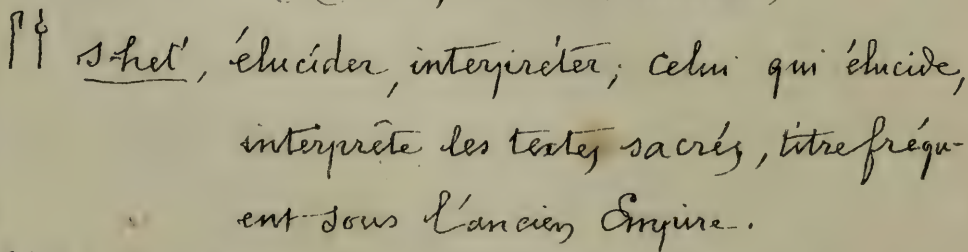 𓋴𓌉 s-het', élucider, interpréter; celui qui élucide,
interprète les textes sacrés, titre fréqu-
ent sous l'ancien Empire.